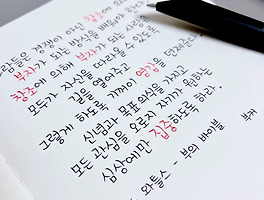 사람들은 경쟁이 아닌 창조에 의해
부자가 되는 방식을 배워야 한다.
창조에 의해 부자가 되는 사람은
모두가 자신을 따라올 수 있도록
길을 열어주고
그렇게 하도록 기꺼이 영감을 던져준다.
신념과 목표의식을 가지고
모든 관심을 오로지 자기가 원하는
심상에만 집중하도록 하라.
와틀스 - 부의 바이블